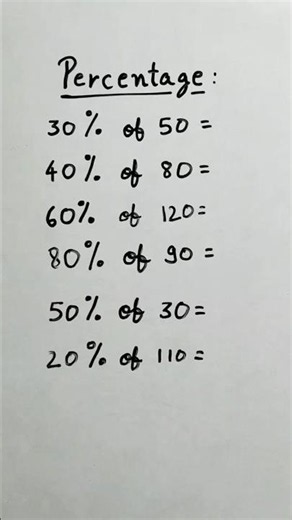 Percentage:
30% of 50 =
40% of 80 =
60% of 120=
80% of 90 =
50% of 30=
20% of 110=